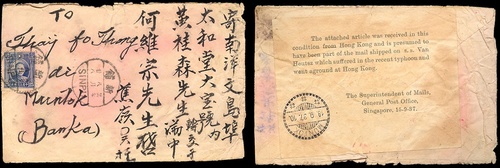 TO
Thaij fo Thong
di
Muntok
(Banka)
寄南洋文島埠
太和堂大宝號內
黃桂森先生滿中
何維宗先生啓
The attached article was received in this
condition from Hong Kong and is presumed to
have been part of the mail shipped on s.s. Van
Heutsz which suffered in the recent typhoon and
went aground at Hong Kong.
The Superintendent of Mails,
General Post Office,
Singapore, 15-9-37.